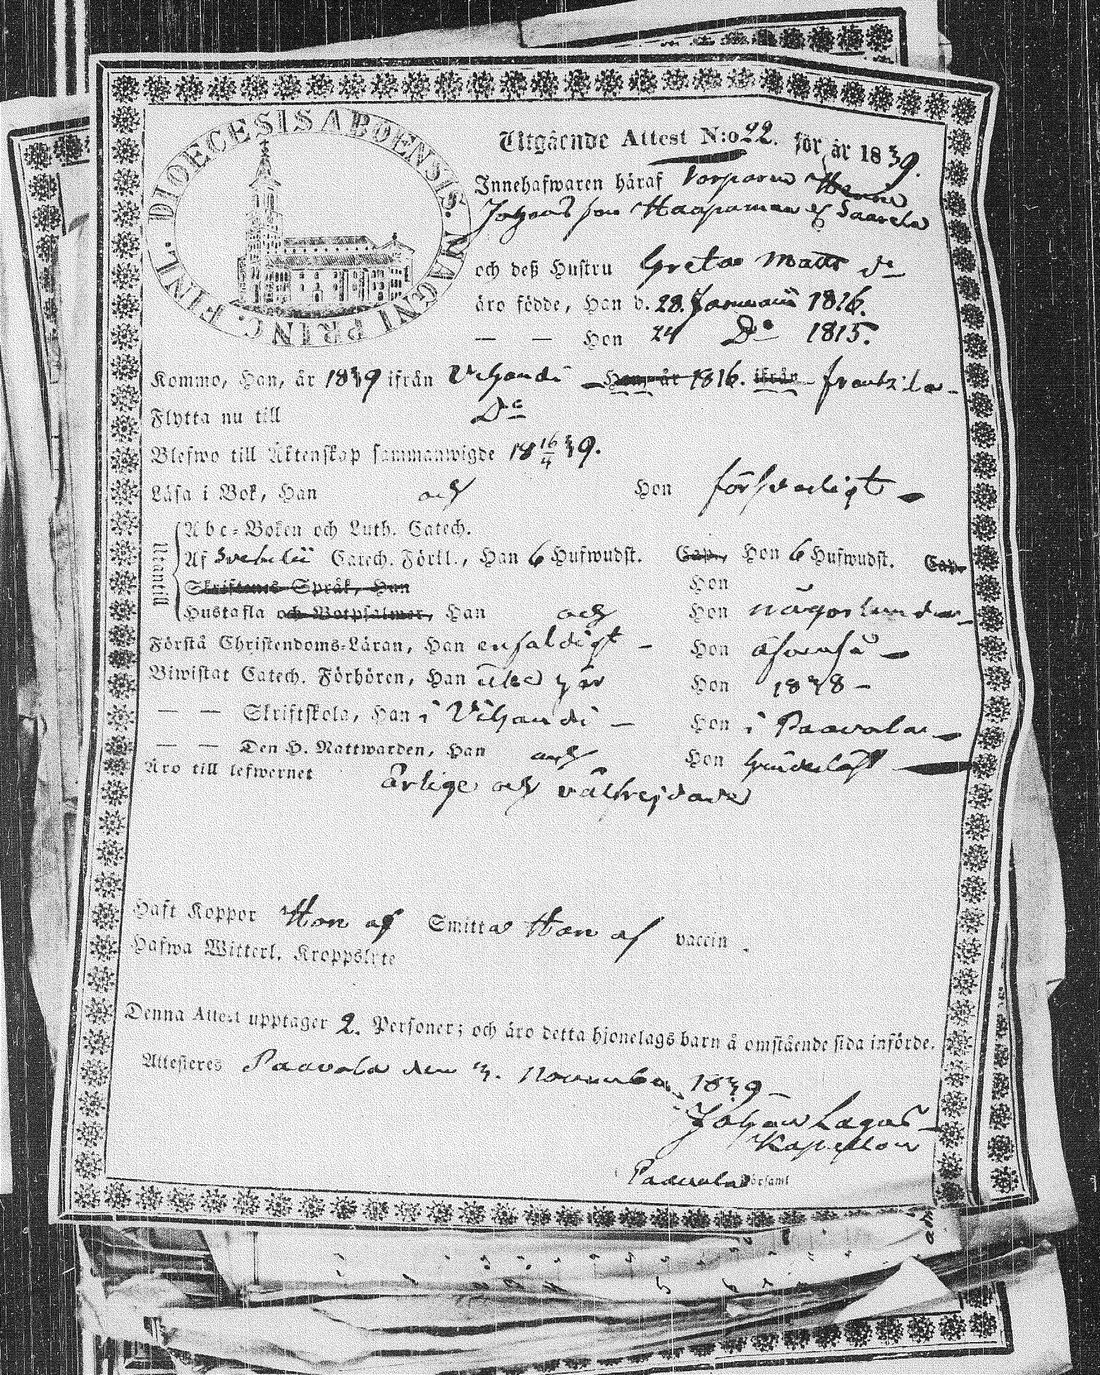 DIOECESIS ABOENSIS. MAGNI PRINC. FINL.
Utgående Attest N:o 22. för år 1839.
Innehafwaren häraf Torparen
Johans son Haapamaa Saarela
och deß Hustru Greta Matts dr
äro födde, Han d. 28. Januarii 1816.
— — Hon 24 Do 1815.
Kommo, Han, år 1839 ifrån Vihandi – Hon, år 1816. ifrån – frantzila –
Flytta nu till Do
Blefwo till Äktenskap sammanwigde 18 16/4 39.
Läsa i Bok, Han och Hon försvarligt –
Utantill
Abc-Boken och Luth. Catech.
Af Svebelii Catech. Förkl., Han 6 Hufwudst. Cap., Hon 6 Hufwudst. Cap.
Skriftenes Språk, Han Hon
Hustafla och Botpsalmer, Han och Hon någorlunda –
Förstå Christendoms-Läran, Han enfaldigt – Hon äfvenså –
Biwistat Catech. Förhören, Han år Hon 1838 –
— — Skriftskola, Han i Vihandi – Hon i Paavola –
— — Den H. Nattwarden, Han och Hon
Äro till lefwernet ärlige och välfrejdade
Haft Koppor Hon af Smitta Han af vaccin.
Hafwa Witterl. Kroppslyte
Denna Attest upptager 2. Personer; och äro detta hjonelags barn å omstående sida införde.
Attesteras Paavola den 3. November 1839 –
Johan Lagus –
Kapellan
Paavola Församl